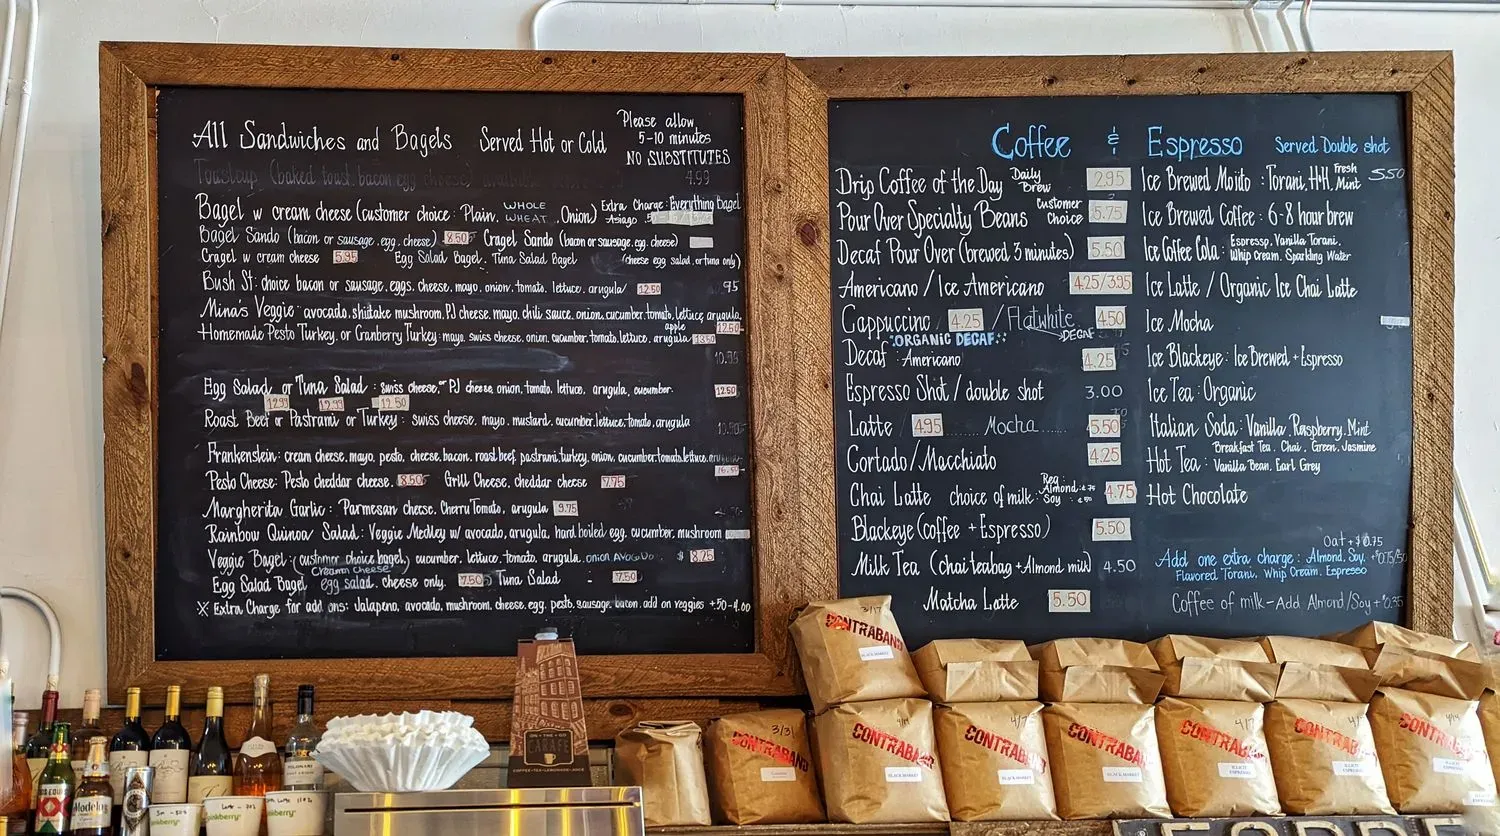 All Sandwiches and Bagels Served Hot or Cold
Please allow
5-10 minutes
NO SUBSTITUTES
4.99
Bagel w cream cheese (customer choice: Plain, WHOLE WHEAT, Onion) Extra Charge: Everything Bagel
Asiago
Bagel Sando (bacon or sausage, egg, cheese) 8.50 Cragel Sando (bacon or sausage, egg, cheese)
Cragel w cream cheese 5.95 Egg Salad Bagel, Tuna Salad Bagel (cheese egg salad, or tuna only)
Bush St: choice bacon or sausage, eggs, cheese, mayo, onion, tomato, lettuce, arugula/ 12.50 95
Mina's Veggie: avocado, shiitake mushroom, PJ cheese, mayo, chili sauce, onion, cucumber, tomato, lettuce, arugula,
apple 12.50
Homemade Pesto Turkey, or Cranberry Turkey: mayo, swiss cheese, onion, cucumber, tomato, lettuce, arugula 13.50
10.95
Egg Salad or Tuna Salad: swiss cheese, or PJ cheese, onion, tomato, lettuce, arugula, cucumber. 12.50
12.99 12.99 12.50
Roast Beef or Pastrami or Turkey: swiss cheese, mayo, mustard, cucumber, lettuce, tomato, arugula
Frankenstein: cream cheese, mayo, pesto, cheese, bacon, roast beef, pastrami, turkey, onion, cucumber, tomato, lettuce,
16.50
Pesto Cheese: Pesto cheddar cheese. 8.50 Grill Cheese, cheddar cheese 7.75
Margherita Garlic: Parmesan cheese, Cherry Tomato, arugula 9.75
Rainbow Quinoa Salad: Veggie Medley w/ avocado, arugula, hard boiled egg, cucumber, mushroom
Veggie Bagel: (customer choice bagel), cucumber, lettuce, tomato, arugula, onion Avocado $ 8.25
Cream Cheese
Egg Salad Bagel egg salad, cheese only. 7.50 Tuna Salad - 7.50
X Extra Charge for add ons: Jalapeno, avocado, mushroom, cheese, egg, pesto, sausage, bacon, add on veggies +50-4.00
Coffee & Espresso Served Double shot
Drip Coffee of the Day Daily Brew 2.95
Pour Over Specialty Beans Customer Choice 5.75
Decaf Pour Over (brewed 3 minutes) 5.50
Americano / Ice Americano 4.25/3.95
Cappuccino 4.25 / Flatwhite 4.50
"ORGANIC DECAF" DECAF
Decaf: Americano 4.25
Espresso Shot / double shot 3.00
Latte 4.95 Mocha 5.50
Cortado/Macchiato 4.25
Chai Latte choice of milk: Reg Almond Soy 4.75
Blackeye (coffee + Espresso) 5.50
Milk Tea (chai teabag + Almond milk) 4.50
Matcha Latte 5.50
Ice Brewed Mojito: Torani, H+H, Fresh Mint 5.50
Ice Brewed Coffee: 6-8 hour brew
Ice Coffee Cola: Espresso, Vanilla Torani,
Whip cream, Sparkling Water
Ice Latte / Organic Ice Chai Latte
Ice Mocha
Ice Blackeye: Ice Brewed + Espresso
Ice Tea: Organic
Italian Soda: Vanilla, Raspberry, Mint
Hot Tea: Breakfast Tea, Chai, Green, Jasmine
Vanilla Bean, Earl Grey
Hot Chocolate
Oat + $0.75
Add one extra charge: Almond, Soy,
Flavored Torani, Whip Cream, Espresso
Coffee of milk - Add Almond/Soy +
ON • THE • GO
CARAFE
COFFEE•TEA•LEMONADE•JUICE
3/17
CONTRABAND
BLACK MARKET
3/31
CONTRABAND
CONTRABAND
BLACK MARKET
4/7
CONTRABAND
BLACK MARKET
CONTRABAND
BLACK MARKET
CONTRABAND
CONTRABAND
CONTRABAND
Modelo
XX
pinkberry
pinkberry
pinkberry